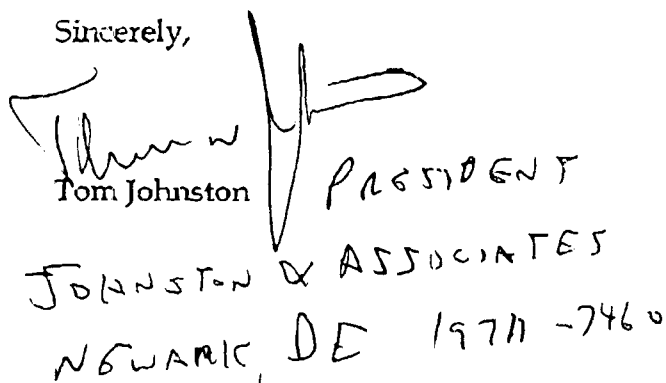 Sincerely,
Tom Johnston
PRESIDENT
JOHNSTON & ASSOCIATES
NEWARK, DE 19711-7460